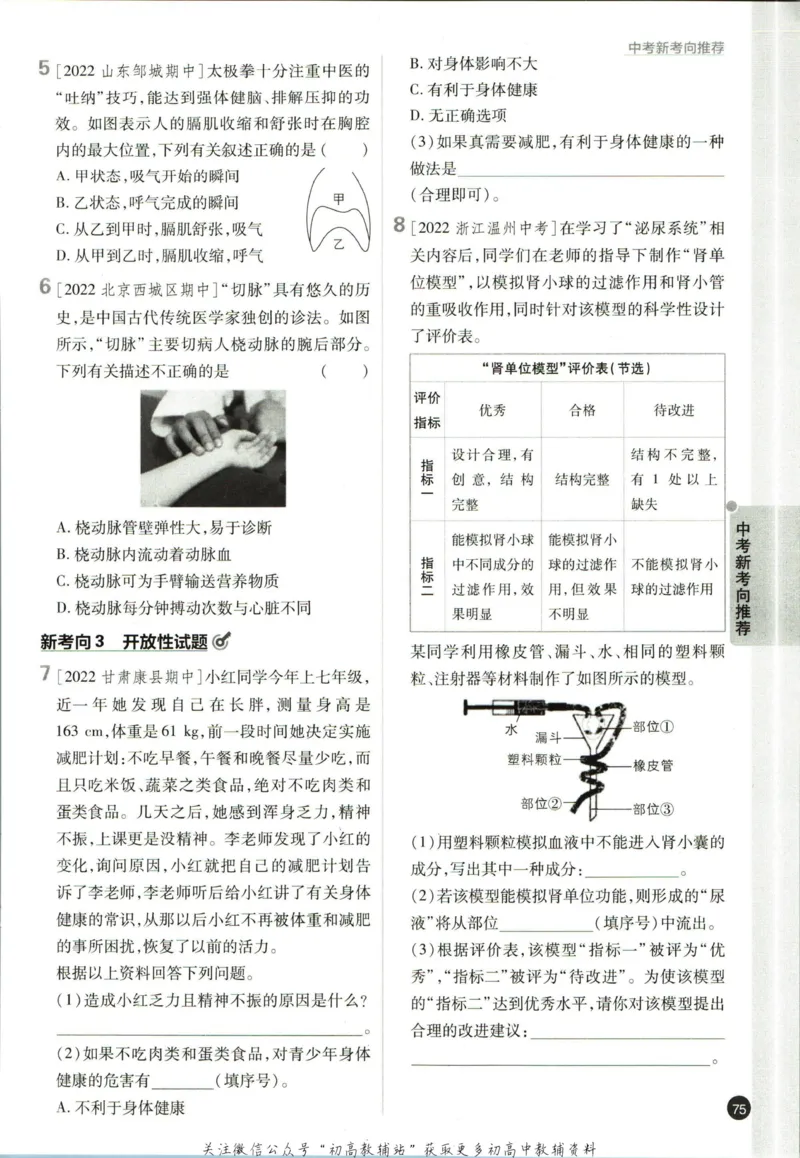 中考新考向推荐
5 [2022 山东邹城期中]太极拳十分注重中医的
“吐纳”技巧,能达到强体健脑、排解压抑的功
效。如图表示人的膈肌收缩和舒张时在胸腔
内的最大位置,下列有关叙述正确的是(　　)
A. 甲状态,吸气开始的瞬间
B. 乙状态,呼气完成的瞬间
C. 从乙到甲时,膈肌舒张,吸气
D. 从甲到乙时,膈肌收缩,呼气
甲
乙
6 [2022 北京西城区期中]“切脉”具有悠久的历
史,是中国古代传统医学家独创的诊法。如图
所示,“切脉”主要切病人桡动脉的腕后部分。
下列有关描述不正确的是　　(　　)
A. 桡动脉管壁弹性大,易于诊断
B. 桡动脉内流动着动脉血
C. 桡动脉可为手臂输送营养物质
D. 桡动脉每分钟搏动次数与心脏不同
新考向3　开放性试题
7 [2022 甘肃康县期中]小红同学今年上七年级,
近一年她发现自己在长胖,测量身高是
163 cm,体重是61 kg,前一段时间她决定实施
减肥计划:不吃早餐,午餐和晚餐尽量少吃,而
且只吃米饭、蔬菜之类食品,绝对不吃肉类和
蛋类食品。几天之后,她感到浑身乏力,精神
不振,上课更是没精神。李老师发现了小红的
变化,询问原因,小红就把自己的减肥计划告
诉了李老师,李老师听后给小红讲了有关身体
健康的常识,从那以后小红不再被体重和减肥
的事所困扰,恢复了以前的活力。
根据以上资料回答下列问题。
(1)造成小红乏力且精神不振的原因是什么?
________________________。
(2)如果不吃肉类和蛋类食品,对青少年身体
健康的危害有______(填序号)。
A. 不利于身体健康
B. 对身体影响不大
C. 有利于身体健康
D. 无正确选项
(3)如果真需要减肥,有利于身体健康的一种
做法是________________________
(合理即可)。
8 [2022 浙江温州中考]在学习了“泌尿系统”相
关内容后,同学们在老师的指导下制作“肾单
位模型”,以模拟肾小球的过滤作用和肾小管
的重吸收作用,同时针对该模型的科学性设计
了评价表。
“肾单位模型”评价表(节选)
评价
指标
优秀
合格
待改进
指标一
设计合理,有
创意,结构
完整
结构完整
结构不完整,
有1处以上
缺失
指标二
能模拟肾小球
中不同成分的
过滤作用,效
果明显
能模拟肾小
球的过滤作
用,但效果
不明显
不能模拟肾小
球的过滤作用
某同学利用橡皮管、漏斗、水、相同的塑料颗
粒、注射器等材料制作了如图所示的模型。
水
漏斗
塑料颗粒
部位②
部位①
橡皮管
部位③
(1)用塑料颗粒模拟血液中不能进入肾小囊的
成分,写出其中一种成分:__________。
(2)若该模型能模拟肾单位功能,则形成的“尿
液”将从部位__________(填序号)中流出。
(3)根据评价表,该模型“指标一”被评为“优
秀”,“指标二”被评为“待改进”。为使该模型
的“指标二”达到优秀水平,请你对该模型提出
合理的改进建议:__________________
________________________。
中考新考向推荐
75
关注微信公众号“初高教辅站”获取更多初高中教辅资料